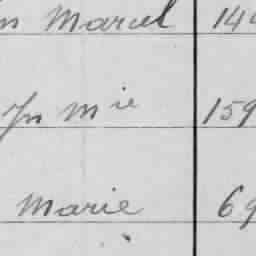 n Marcel 14
Jn Mie 159
Marie 69